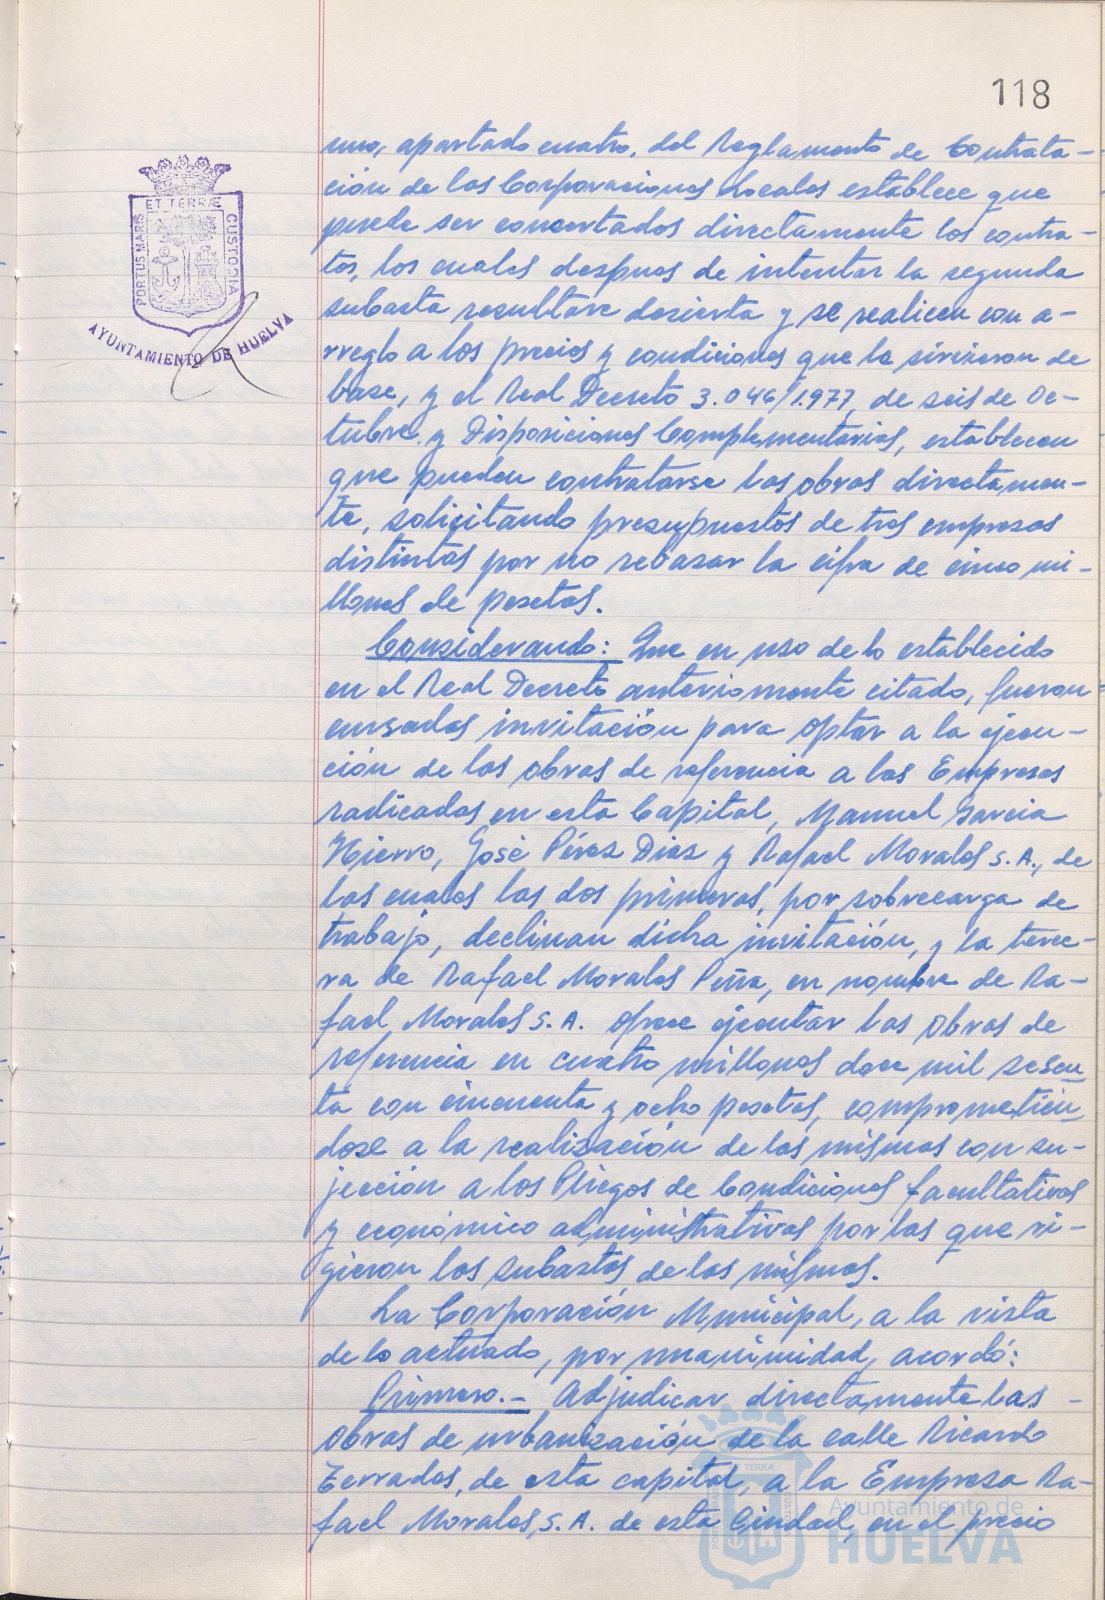 118
ET TERRÆ
PORTUS MARIS
CUSTODIA
AYUNTAMIENTO DE HUELVA
uno, apartado cuatro, del Reglamento de Contrata-
ción de las Corporaciones Locales establece que
puede ser concertados directamente los contra-
tos, los cuales despues de intentar la segunda
subasta resultare desierta y se realicen con a-
rreglo a los precios y condiciones que la sirvieron de
base, y el Real Decreto 3.046/1.977, de seis de Oc-
tubre y Disposiciones Complementarias, establecen
que pueden contratarse las obras directamen-
te, solicitando presupuestos de tres empresas
distintas por no rebasar la cifra de cinco mi-
llones de pesetas.
Considerando: Que en uso de lo establecido
en el Real Decreto anteriormente citado, fueron
cursadas invitación para optar a la ejecu-
ción de las obras de referencia a las Empresas
radicadas en esta Capital, Manuel Garcia
Hierro, José Pérez Diaz y Rafael Morales S.A., de
las cuales las dos primeras, por sobrecarga de
trabajo, declinan dicha invitación, y la terce-
ra de Rafael Morales Peña, en nombre de Ra-
fael Morales S.A. ofrece ejecutar las obras de
referencia en cuatro millones doce mil sesen
ta con cincuenta y ocho pesetas, comprometien
dose a la realización de las mismas con su-
jección a los Pliegos de Condiciones facultativas
y económico administrativas por las que ri-
gieron las subastas de las mismas.
La Corporación Municipal, a la vista
de lo actuado, por unanimidad, acordó:
Primero.- Adjudicar directamente las -
obras de urbanización de la calle Ricardo
Terrades, de esta capital, a la Empresa Ra-
fael Morales, S.A. de esta Ciudad, en el precio
Ayuntamiento de
HUELVA